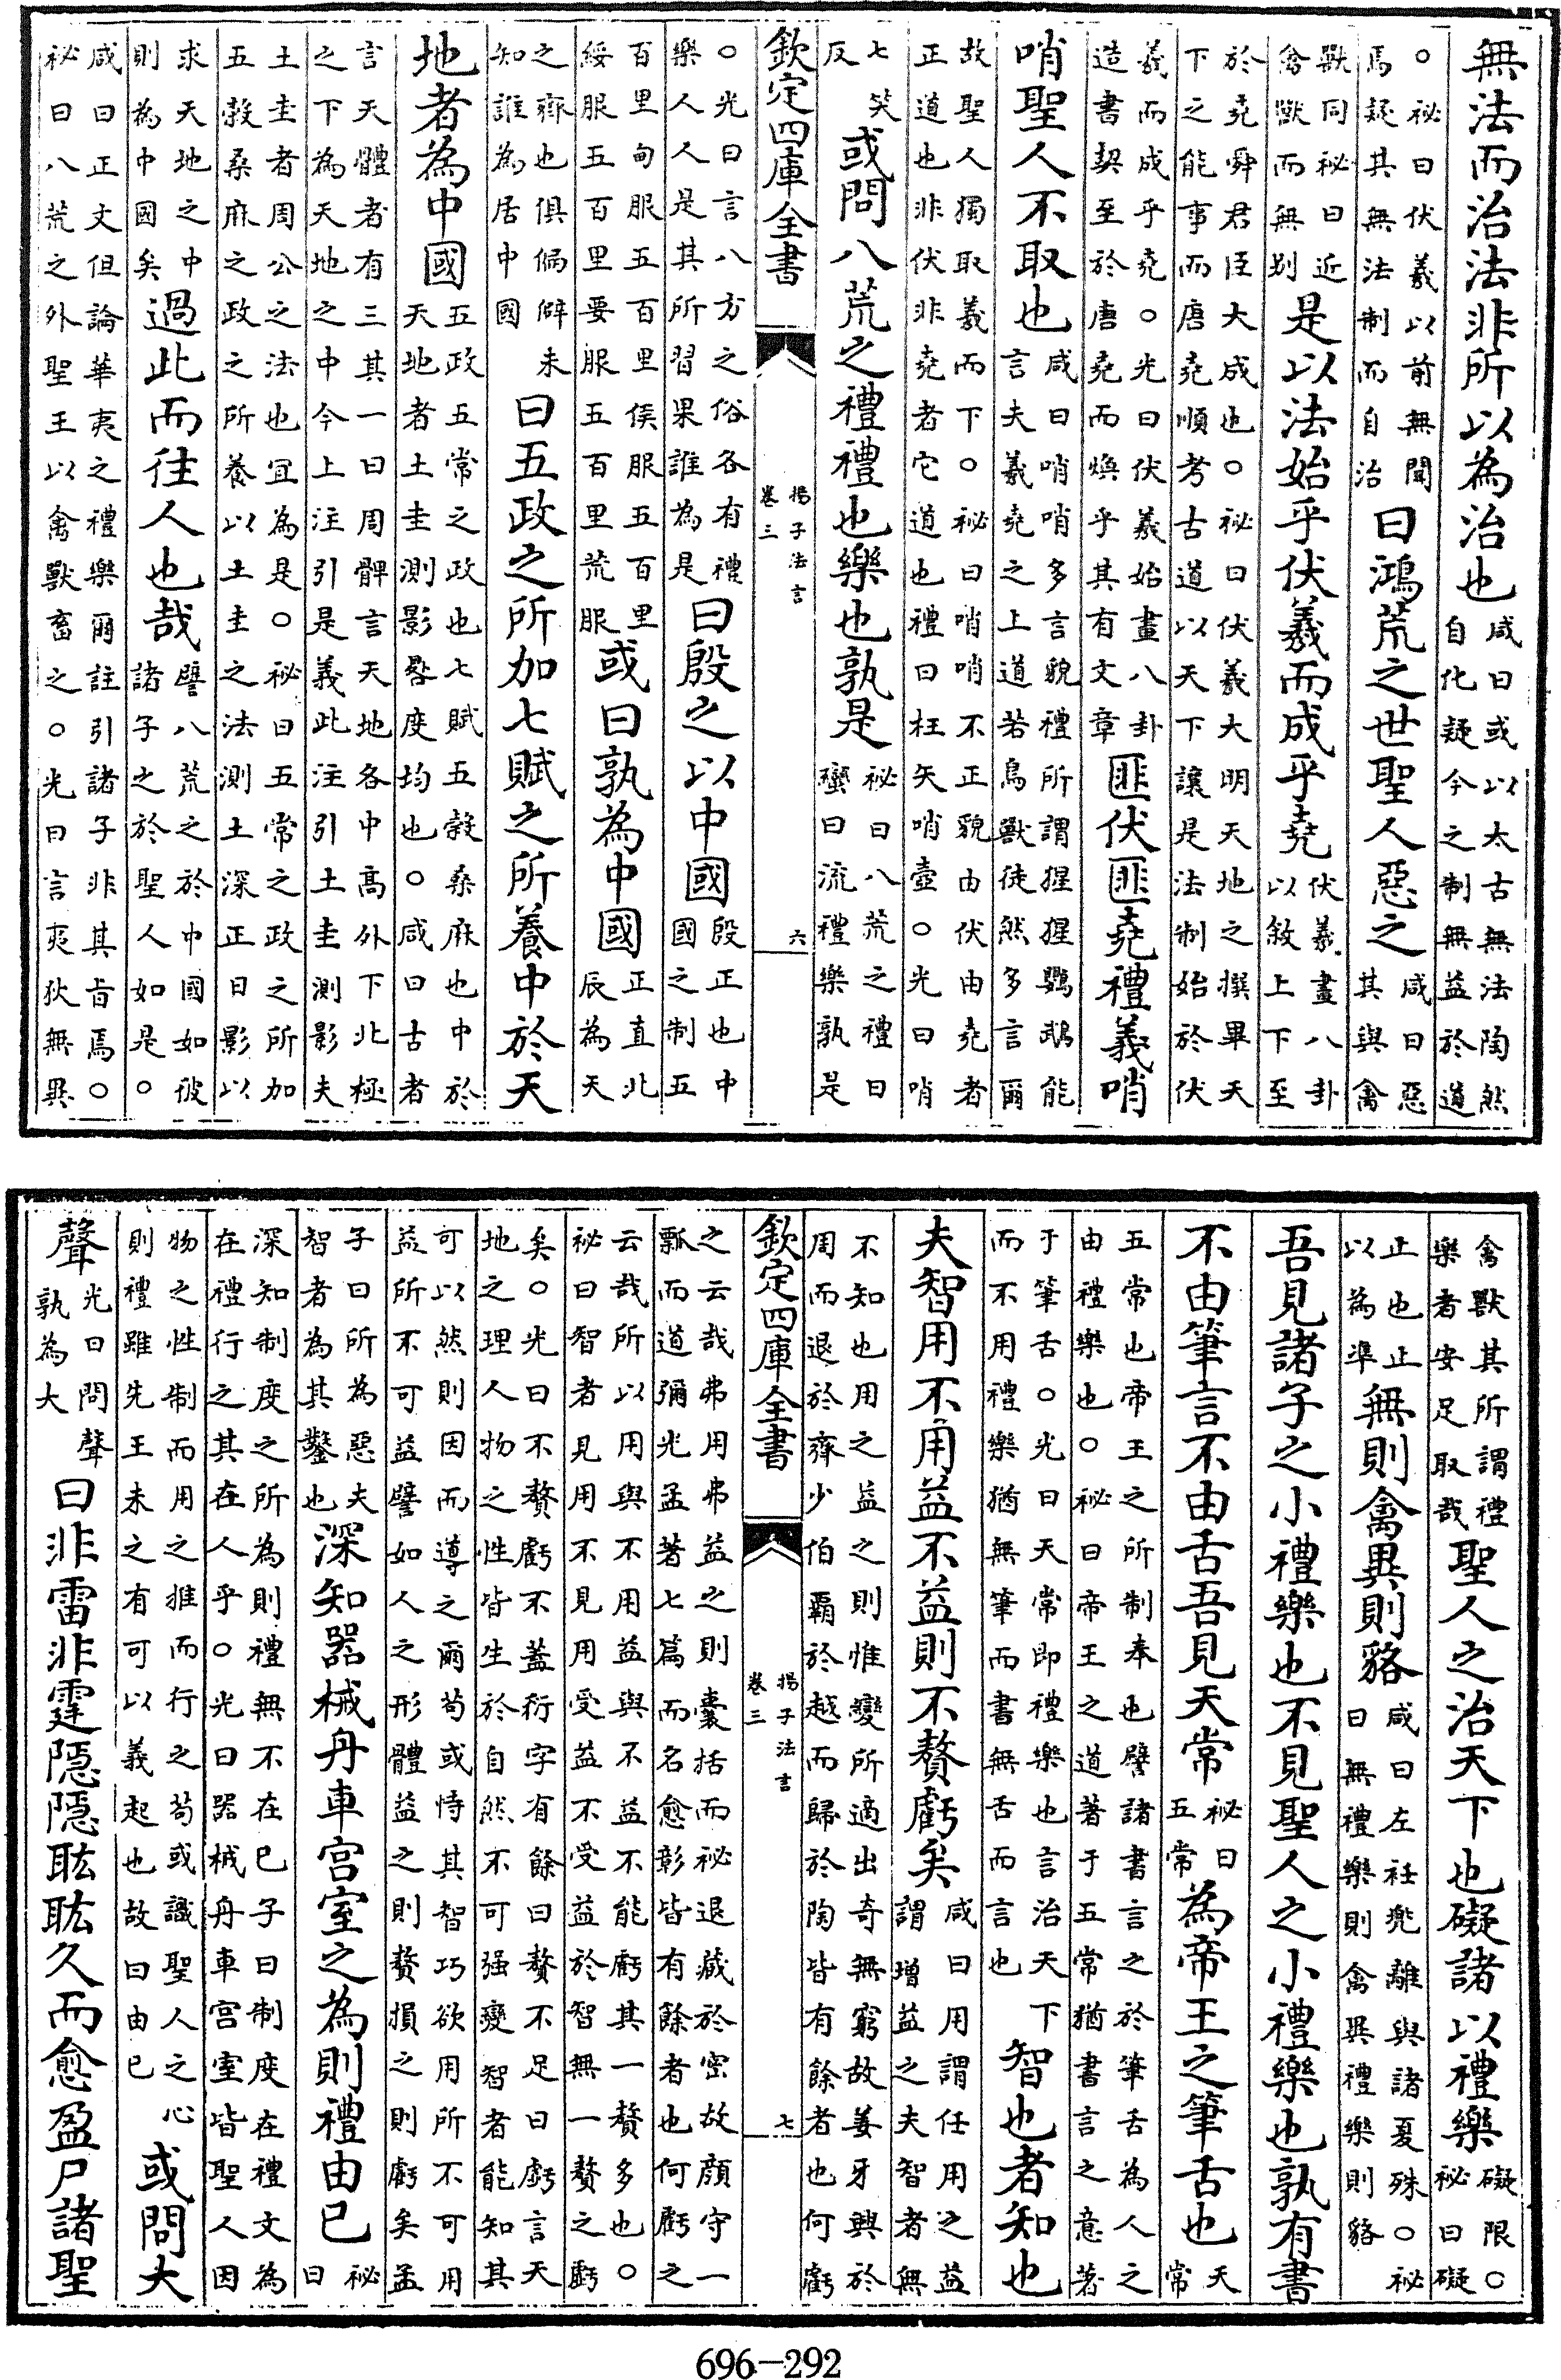 無法而治法非所以為治也咸曰或以太古無法陶然自化疑今之制無益於道
○祕曰伏羲以前無聞焉疑其無法制而自治曰鴻荒之世聖人惡之咸曰惡其與禽
獸同祕曰近禽獸而無别是以法始乎伏羲而成乎堯伏羲畫八卦以敘上下至
於堯舜君臣大成也○祕曰伏羲大明天地之撰畢天下之能事而唐堯順考古道以天下讓是法制始於伏
羲而成乎堯○光曰伏羲始畫八卦造書契至於唐堯而煥乎其有文章匪伏匪堯禮義哨
哨聖人不取也咸曰哨哨多言貌禮所謂猩猩鸚鵡能言夫羲堯之上道若鳥獸徒然多言爾
故聖人獨取羲而下○祕曰哨哨不正貌由伏由堯者正道也非伏非堯者它道也禮曰枉矢哨壺○光曰哨
七笑反或問八荒之禮禮也樂也孰是祕曰八荒之禮曰蠻曰流禮樂孰是
欽定四庫全書 揚子法言 卷三 六
○光曰言八方之俗各有禮樂人人是其所習果誰為是曰殷之以中國殷正也中國之制五
百里甸服五百里侯服五百里綏服五百里要服五百里荒服或曰孰為中國正直北辰為天
之齊也俱偏僻未知誰為居中國曰五政之所加七賦之所養中於天
地者為中國五政五常之政也七賦五穀桑麻也中於天地者土圭測影晷度均也○咸曰古者
言天體者有三其一曰周髀言天地各中高外下北極之下為天地之中今上注引是義此注引土圭測影夫
土圭者周公之法也宜為是○祕曰五常之政之所加五穀桑麻之政之所養以土圭之法測土深正日影以
求天地之中則為中國矣過此而往人也哉譬八荒之於中國如彼諸子之於聖人如是○
咸曰正文但論華夷之禮樂爾註引諸子非其旨焉○祕曰八荒之外聖王以禽獸畜之○光曰言夷狄無異
禽獸其所謂禮樂者安足取哉聖人之治天下也礙諸以禮樂礙限○祕曰礙
止也止以為凖無則禽異則貉咸曰左衽兜離與諸夏殊○祕曰無禮樂則禽異禮樂則貉
吾見諸子之小禮樂也不見聖人之小禮樂也孰有書
不由筆言不由舌吾見天常祕曰五常為帝王之筆舌也天常
五常也帝王之所制奉也譬諸書言之於筆舌為人之由禮樂也○祕曰帝王之道著于五常猶書言之意著
于筆舌○光曰天常即禮樂也言治天下而不用禮樂猶無筆而書無舌而言也智也者知也
夫智用不用益不益則不贅虧矣咸曰用謂任用之益謂增益之夫智者無
不知也用之益之則惟變所適出奇無窮故姜牙興於周而退於齊少伯霸於越而歸於陶皆有餘者也何虧
欽定四庫全書 揚子法言 卷三 七
之云哉弗用弗益之則囊括而祕退藏於密故顔守一瓢而道彌光孟著七篇而名愈彰皆有餘者也何虧之
云哉所以用與不用益與不益不能虧其一贅多也○祕曰智者見用不見用受益不受益於智無一贅之虧
矣○光曰不贅虧不蓋衍字有餘曰贅不足曰虧言天地之理人物之性皆生於自然不可强變智者能知其
可以然則因而導之爾苟或恃其智巧欲用所不可用益所不可益譬如人之形體益之則贅損之則虧矣孟
子曰所為惡夫智者為其鑿也深知器械舟車宫室之為則禮由已祕曰
深知制度之所為則禮無不在已子曰制度在禮文為在禮行之其在人乎○光曰器械舟車宫室皆聖人因
物之性制而用之推而行之苟或識聖人之心則禮雖先王未之有可以義起也故曰由已或問大
聲光曰問聲孰為大曰非雷非霆隱隱耾耾久而愈盈尸諸聖
696-292